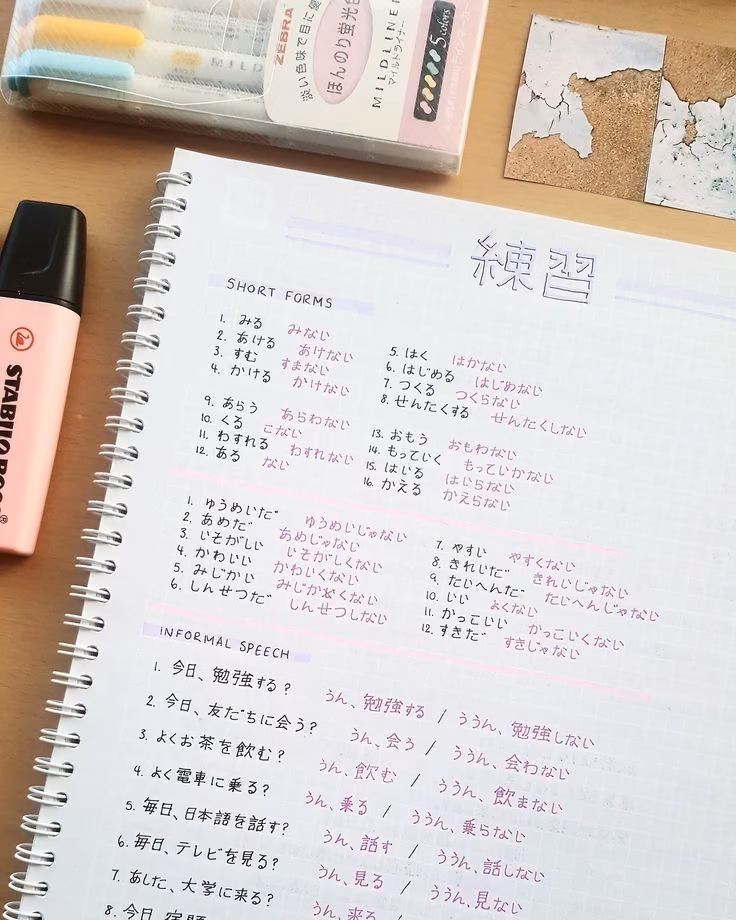 ZEBRA
淡い色味で目に
ほんのり蛍光色
MILDLINER
マイルドライナー
5 colors
STABILO BOSS
練習
SHORT FORMS
1. みる みない
2. あける あけない
3. すむ すまない
4. かける かけない
5. はく はかない
6. はじめる はじめない
7. つくる つくらない
8. せんたくする せんたくしない
9. あらう あらわない
10. くる こない
11. わすれる わすれない
12. ある ない
13. おもう おもわない
14. もっていく もっていかない
15. はいる はいらない
16. かえる かえらない
1. ゆうめいだ ゆうめいじゃない
2. あめだ あめじゃない
3. いそがしい いそがしくない
4. かわいい かわいくない
5. みじかい みじかくない
6. しんせつだ しんせつしない
7. やすい やすくない
8. きれいだ きれいじゃない
9. たいへんだ たいへんじゃない
10. いい よくない
11. かっこいい かっこいくない
12. すきだ すきじゃない
INFORMAL SPEECH
1. 今日、勉強する? うん、勉強する / ううん、勉強しない
2. 今日、友だちに会う? うん、会う / ううん、会わない
3. よくお茶を飲む? うん、飲む / ううん、飲まない
4. よく電車に乗る? うん、乗る / ううん、乗らない
5. 毎日、日本語を話す? うん、話す / ううん、話しない
6. 毎日、テレビを見る? うん、見る / ううん、見ない
7. あした、大学に来る? うん、来る /
8. 今日、宿題